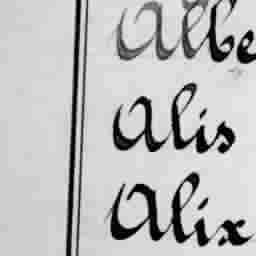 Albe
Alis
Alix